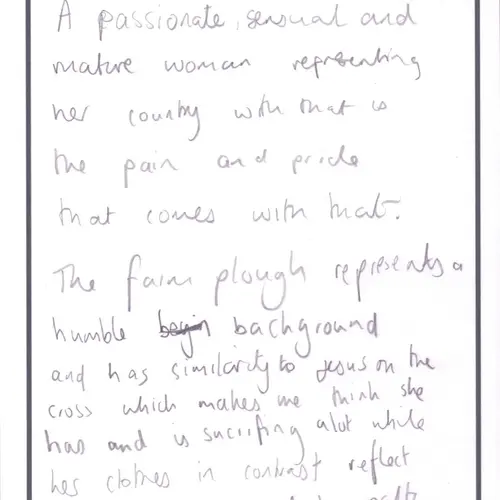 A passionate, sensual and
mature woman representing
her country with that is
the pain and pride
that comes with that.
The farm plough represents a
humble begin background
and has similarity to Jesus on the
cross which makes me think she
has and is sacrifing alot while
her clothes in contrast reflect